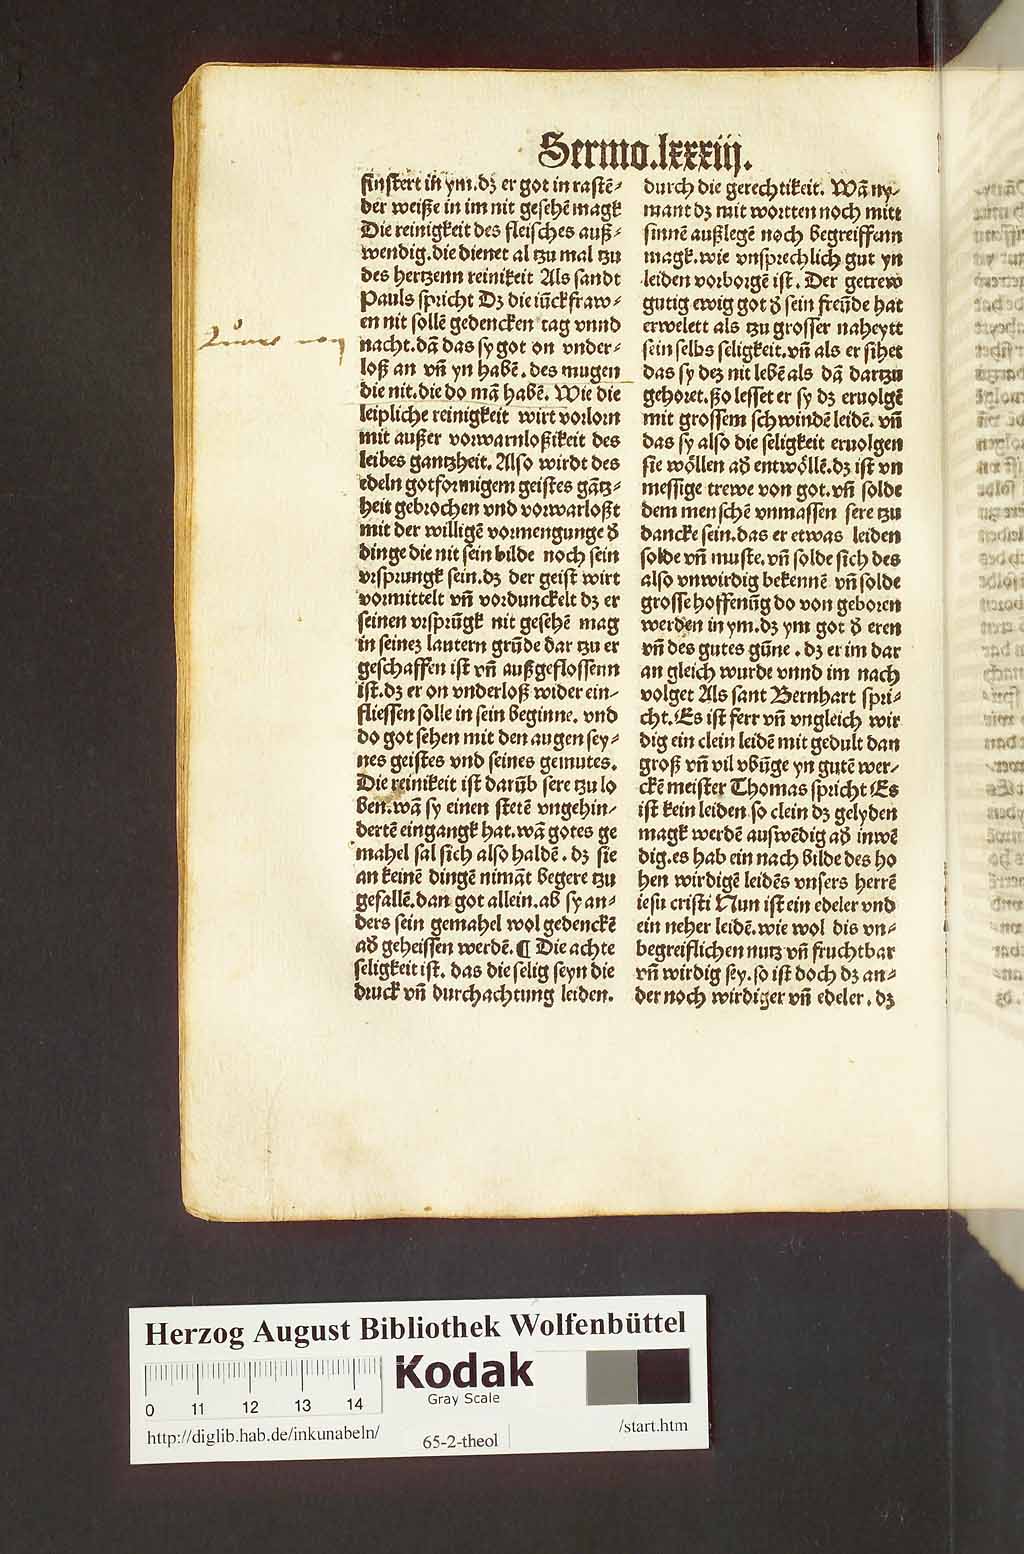 Sermo.lxxxiij.
finstert in ym.dʒ er got in rastē⸗
der weiße in im nit gesehē magk
Die reinigkeit des fleisches auß⸗
wendig.die dienet al tzu mal tzu
des hertzenn reinikeit Als sandt
Pauls spricht Dʒ die iūckfraw⸗
en nit sollē gedencken tag vnnd
nacht.dā das sy got on vnder⸗
loß an vn̄ yn habē.des mugen
die nit.die do mā habē. Wie die
leipliche reinigkeit wirt vorlorn
mit außer vorwarnloßikeit des
leibes gantzheit. Also wirdt des
edeln gotformigem geistes gātz⸗
heit gebrochen vnd vorwarloßt
mit der willigē vormengunge ð
dinge die nit sein bilde noch sein
vrsprungk sein.dʒ der geist wirt
vormittelt vn̄ vordunckelt dʒ er
seinen vrsprūgk nit gesehē mag
in seineʒ lautern grūde dar tzu er
geschaffen ist vn̄ außgeflossenn
ist.dʒ er on vnderloß wider ein⸗
fliessen solle in sein beginne. vnd
do got sehen mit den augen sey⸗
nes geistes vnd seines gemutes.
Die reinikeit ist darūb sere tzu lo
ben.wā sy einen stetē vngehin⸗
dertē eingangk hat.wā gotes ge
mahel sal sich also haldē. dʒ sie
an keinē dingē nimāt begere tzu
gefallē.dan got allein.ab sy an⸗
ders sein gemahel wol gedenckē
að geheissen werdē.¶ Die achte
seligkeit ist. das die selig seyn die
druck vn̄ durchachtung leiden.
durch die gerechtikeit. Wā ny⸗
mant dʒ mit wortten noch mitt
sinnē außlegē noch begreiffenn
magk.wie vnsprechlich gut yn
leiden vorborgē ist. Der getrew
gutig ewig got ð sein freūde hat
erwelett als tzu grosser naheytt
sein selbs seligkeit.vn̄ als er sihet
das sy deʒ nit lebē als dā dartzu
gehoret.ßo lesset er sy dʒ eruolgē
mit grossem schwindē leidē. vn̄
das sy also die seligkeit eruolgen
sie wöllen að entwöllē.dʒ ist vn
messige trewe von got.vn̄ solde
dem menschē vnmassen sere tzu
dancke sein.das er etwas leiden
solde vn̄ muste.vn̄ solde sich des
also vnwirdig bekennē vn̄ solde
grosse hoffenūg do von geboren
werden in ym.dʒ ym got ð eren
vn̄ des gutes gūne. dʒ er im dar
an gleich wurde vnnd im nach
volget Als sant Bernhart spri⸗
cht.Es ist ferr vn̄ vngleich wir
dig ein clein leidē mit gedult dan
groß vn̄ vil vbūge yn gutē wer⸗
ckē meister Thomas spricht Es
ist kein leiden so clein dʒ gelyden
magk werdē auswēdig að inwē
dig.es hab ein nach bilde des ho
hen wirdigē leidēs vnsers herrē
iesu cristi Nun ist ein edeler vnd
ein neher leidē.wie wol dis vn⸗
begreiflichen nutz vn̄ fruchtbar
vn̄ wirdig sey.so ist doch dʒ an⸗
der noch wirdiger vn̄ edeler. dʒ
Herzog August Bibliothek Wolfenbüttel
Kodak
Gray Scale
0 11 12 13 14
http://diglib.hab.de/inkunabeln/
65-2-theol
/start.htm